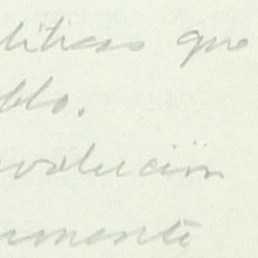 líticas que
blo.
evolución
amente